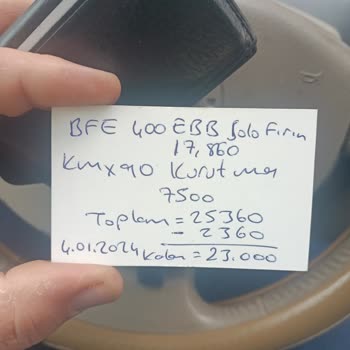 BFE 400 EBB Solo Fırın
17,860
Kmx90 Kurutma
7500
Toplam = 25360
- 2360
4.01.2024 Kalan = 23.000